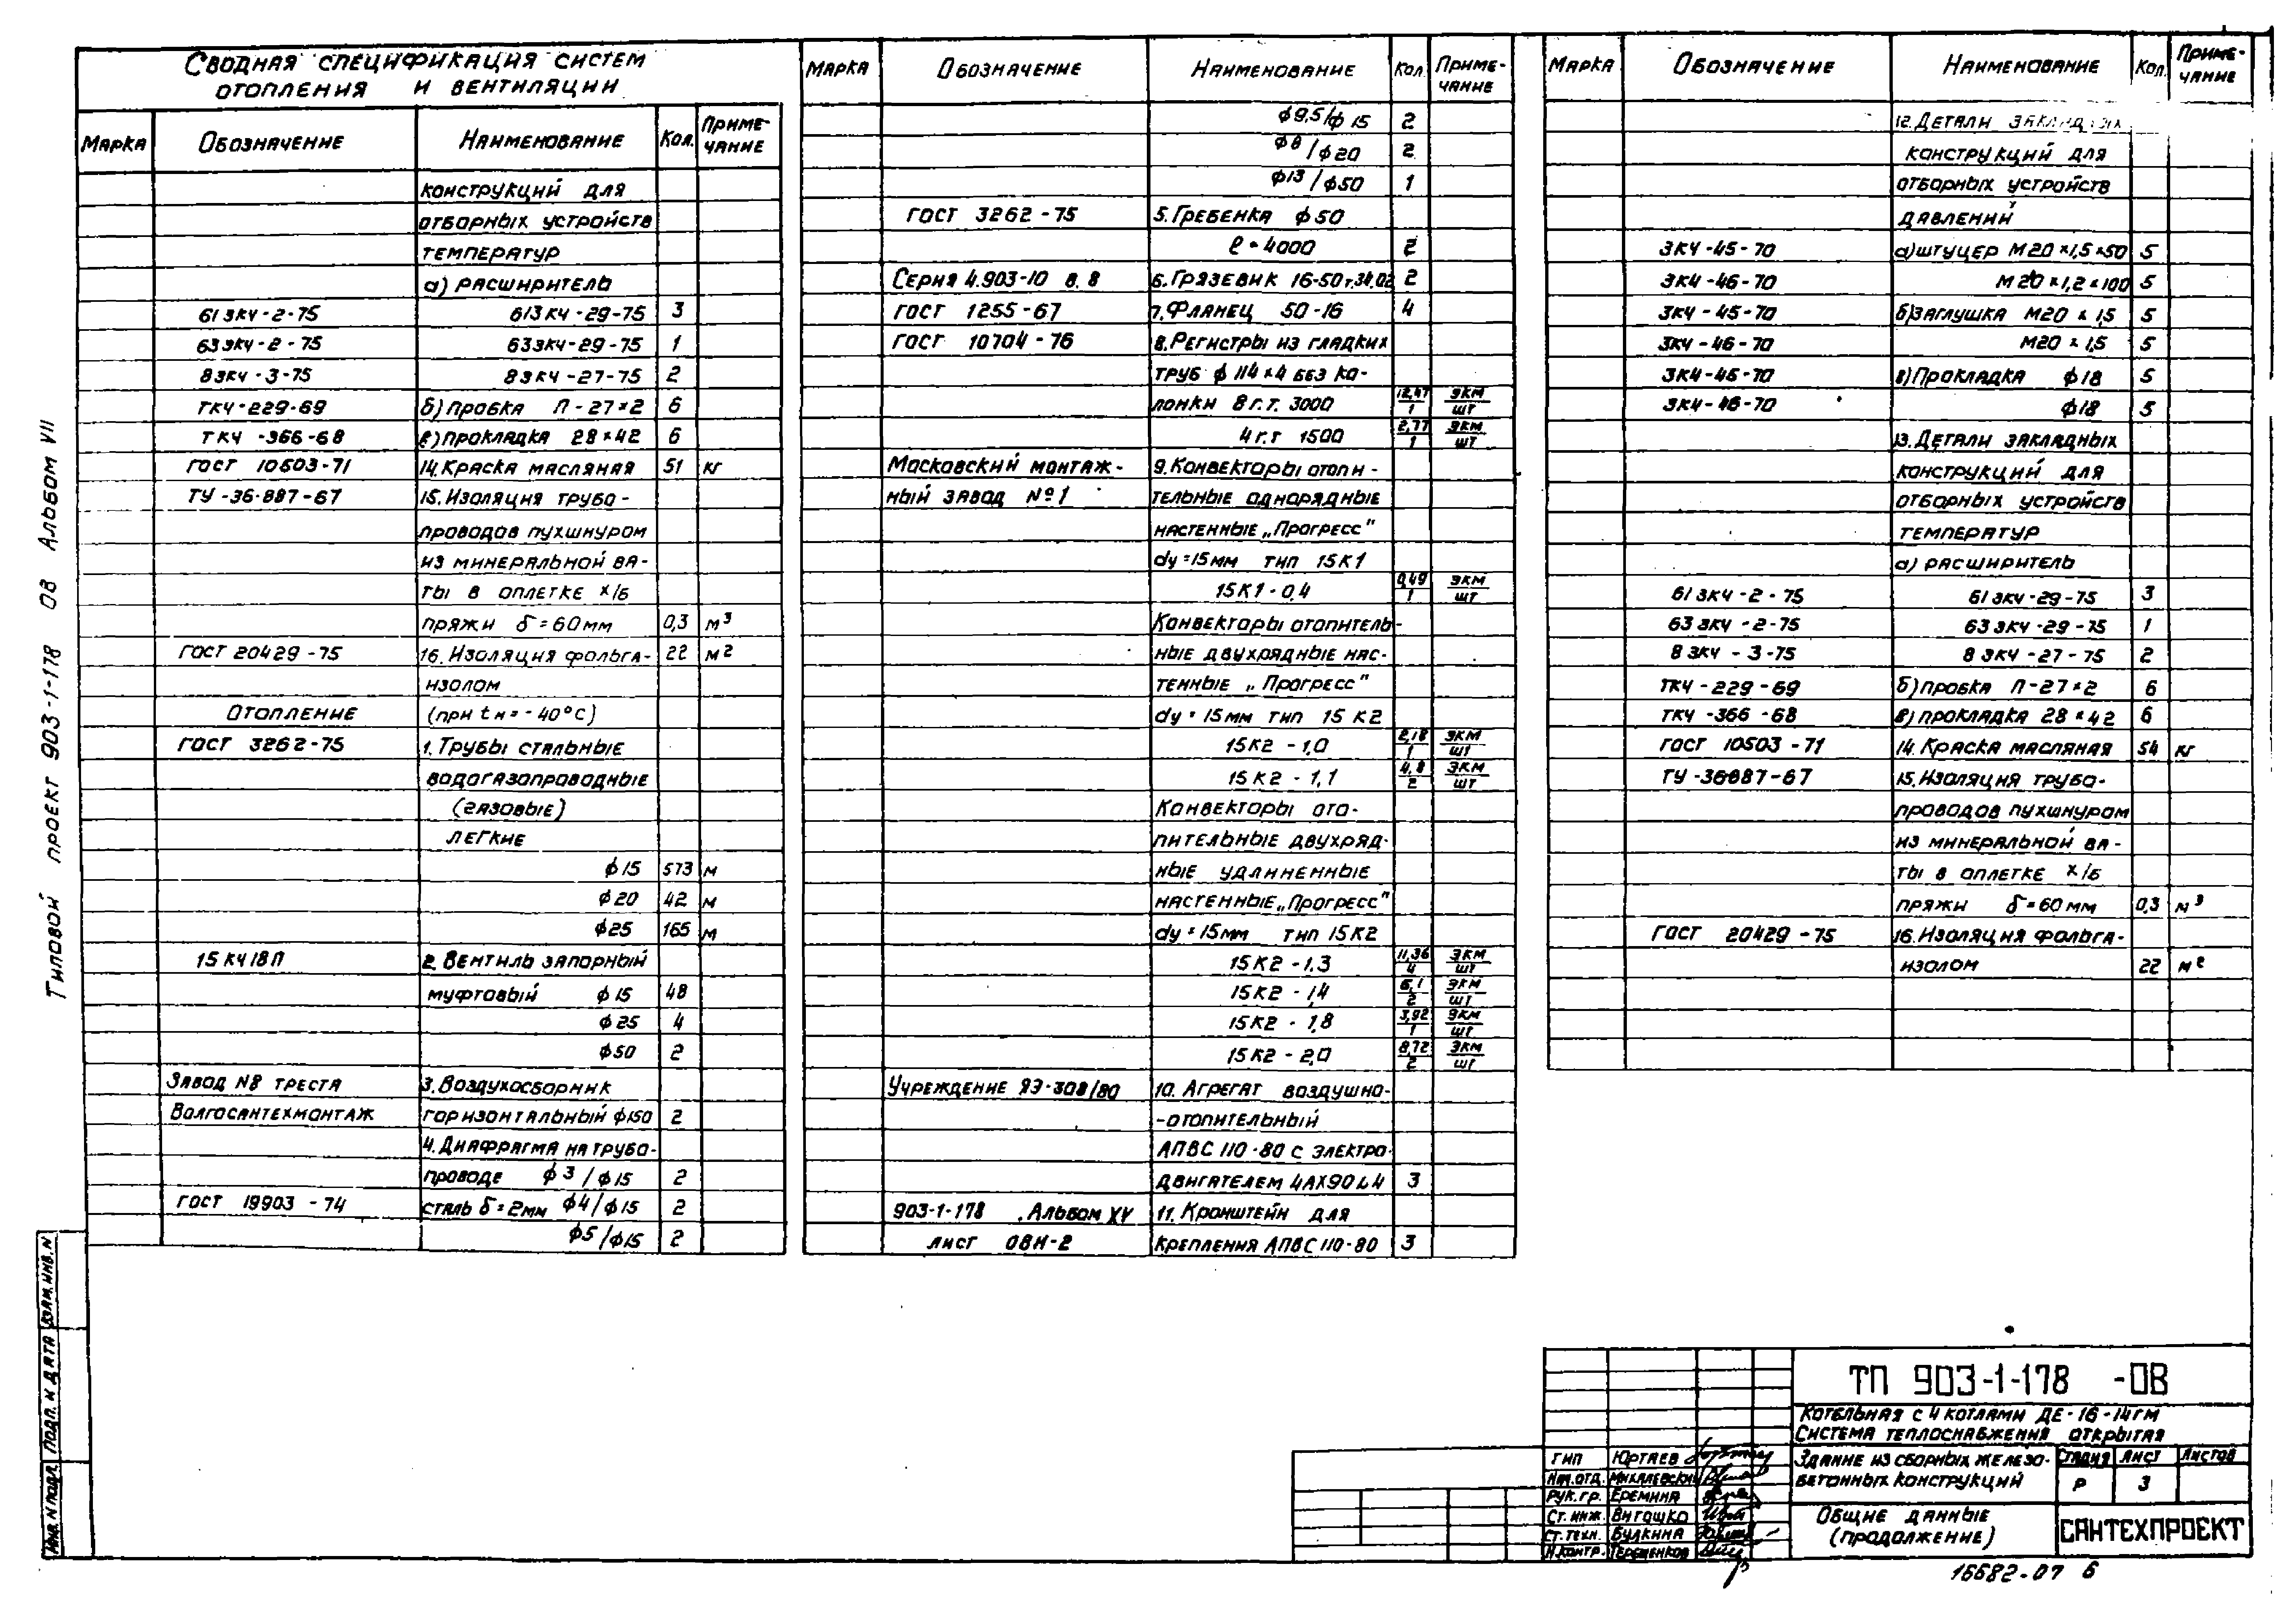 Сводная спецификация систем
отопления и вентиляции
Марка Обозначение Наименование Кол. Приме-
чание
конструкций для
отборных устройств
температур
а) расширитель
61 ЗКЧ-2-75 61ЗКЧ-29-75 3
63ЗКЧ-2-75 63ЗКЧ-29-75 1
8ЗКЧ-3-75 8ЗКЧ-27-75 2
ТКЧ-229-69 б) пробка П-27×2 6
ТКЧ-366-68 в) прокладка 28×42 6
ГОСТ 10503-71 14. Краска масляная 51 кг
ТУ-36-887-67 15. Изоляция трубо-
проводов пухшнуром
из минеральной ва-
ты в оплетке х/б
пряжи δ=60мм 0,3 м³
ГОСТ 20429-75 16. Изоляция фольга- 22 м²
изолом
Отопление (при tн=-40°С)
ГОСТ 3262-75 1. Трубы стальные
водогазопроводные
(газовые)
легкие
ф15 573 м
ф20 42 м
ф25 165 м
15КЧ18П 2. Вентиль запорный
муфтовый ф15 48
ф25 4
ф50 2
Завод N8 треста 3. Воздухосборник
Волгосантехмонтаж горизонтальный ф150 2
4. Диафрагма на трубо-
проводе ф3/ф15 2
ГОСТ 19903-74 сталь δ=2мм ф4/ф15 2
ф5/ф15 2
Марка Обозначение Наименование Кол. Приме-
чание
ф9,5/ф15 2
ф8/ф20 2
ф13/ф50 1
ГОСТ 3262-75 5. Гребенка ф50
ℓ=4000 2
Серия 4.903-10 в.8 6. Грязевик 16-50 т.34.02 2
ГОСТ 1255-67 7. Фланец 50-16 4
ГОСТ 10704-76 8. Регистры из гладких
труб ф114×4 без ко-
лонки 8г.т. 3000 12,47/1 экм/шт
4г.т 1500 2,77/1 экм/шт
Московский монтаж- 9. Конвекторы отопи-
ный завод №1 тельные однорядные
настенные „Прогресс"
dу=15мм тип 15К1
15К1-0,4 0,49/1 экм/шт
Конвекторы отопитель-
ные двухрядные нас-
тенные „Прогресс"
dу=15мм тип 15К2
15К2-1,0 2,18/1 экм/шт
15К2-1,1 4,8/2 экм/шт
Конвекторы ото-
пительные двухряд-
ные удлиненные
настенные „Прогресс"
dу=15мм тип 15К2
15К2-1,3 11,36/4 экм/шт
15К2-1,4 6,1/2 экм/шт
15К2-1,8 3,92/1 экм/шт
15К2-2,0 8,72/2 экм/шт
Учреждение ЯЭ-308/80 10. Агрегат воздушно-
-отопительный
АПВС 110-80 с электро-
двигателем 4АХ90L4 3
903-1-178 . Альбом XV 11. Кронштейн для
лист ОВН-2 крепления АПВС 110-80 3
Марка Обозначение Наименование Кол. Приме-
чание
12. Детали закладных
конструкций для
отборных устройств
давлений
ЗКЧ-45-70 а) штуцер М20×1,5×50 5
ЗКЧ-46-70 М20×1,2×100 5
ЗКЧ-45-70 б) заглушка М20×1,5 5
ЗКЧ-46-70 М20×1,5 5
ЗКЧ-45-70 в) Прокладка ф18 5
ЗКЧ-46-70 ф18 5
13. Детали закладных
конструкций для
отборных устройств
температур
а) расширитель
61ЗКЧ-2-75 61ЗКЧ-29-75 3
63ЗКЧ-2-75 63ЗКЧ-29-75 1
8ЗКЧ-3-75 8ЗКЧ-27-75 2
ТКЧ-229-69 б) пробка П-27×2 6
ТКЧ-366-68 в) прокладка 28×42 6
ГОСТ 10503-71 14. Краска масляная 54 кг
ТУ-36887-67 15. Изоляция трубо-
проводов пухшнуром
из минеральной ва-
ты в оплетке х/б
пряжи δ=60мм 0,3 м³
ГОСТ 20429-75 16. Изоляция фольга-
изолом 22 м²
Типовой проект 903-1-178 ОВ Альбом VII
Инв. N подл. Подп. и дата Взам. инв. N
ТП 903-1-178 -ОВ
Котельная с 4 котлами ДЕ-16-14ГМ
Система теплоснабжения открытая
Здание из сборных железо-
бетонных конструкций
Стадия Лист Листов
Р 3
Общие данные
(продолжение)
САНТЕХПРОЕКТ
ГИП Юртаев
Нач.отд. Михалевский
Рук.гр. Еремина
Ст.инж. Витошко
Ст.техн. Будкина
Н.контр. Терещенков
16682-07 6